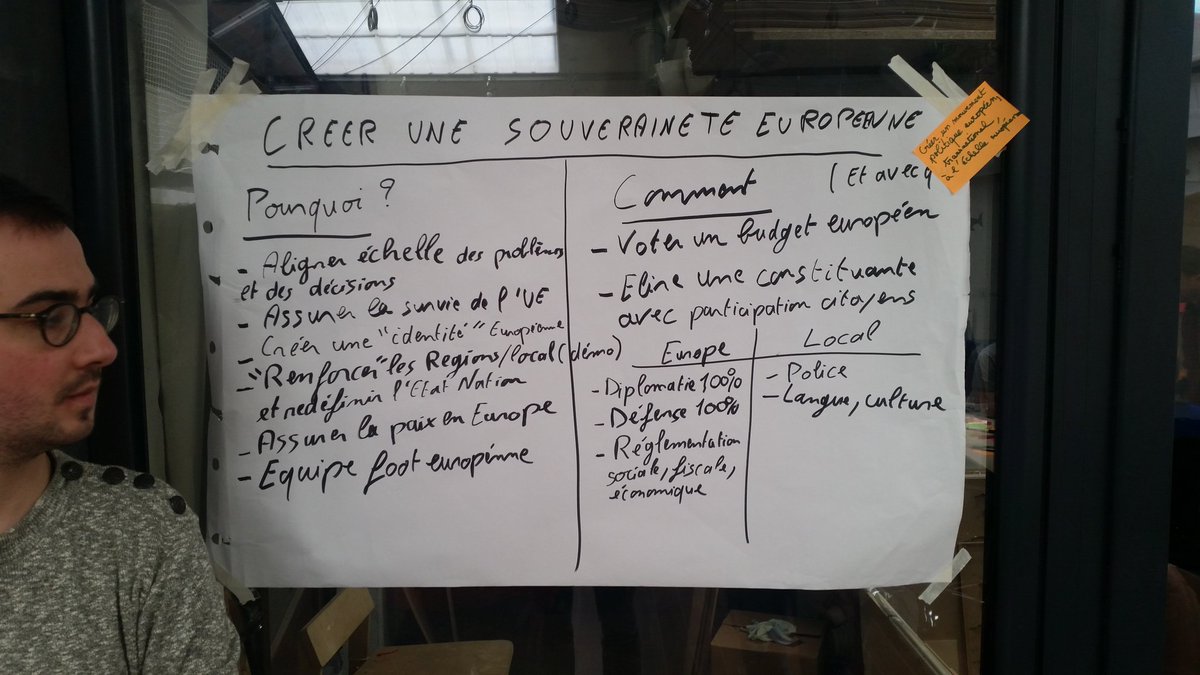 CREER UNE SOUVERAINETE EUROPEENNE
créer un mouvement
politique européen,
transnational,
à l'échelle européenne
Pourquoi ?
- Aligner échelle des problèmes
et des décisions
- Assurer la survie de l'UE
- Créer une "identité" Européenne
- "Renforcer" les Régions/local (démo)
et redéfinir l'Etat Nation
- Assurer la paix en Europe
- Equipe foot européenne
Comment (Et avec q
- Voter un budget européen
- Elire une constituante
avec participation citoyens
Europe
- Diplomatie 100%
- Défense 100%
- Réglementation
sociale, fiscale,
économique
Local
- Police
- Langue, culture